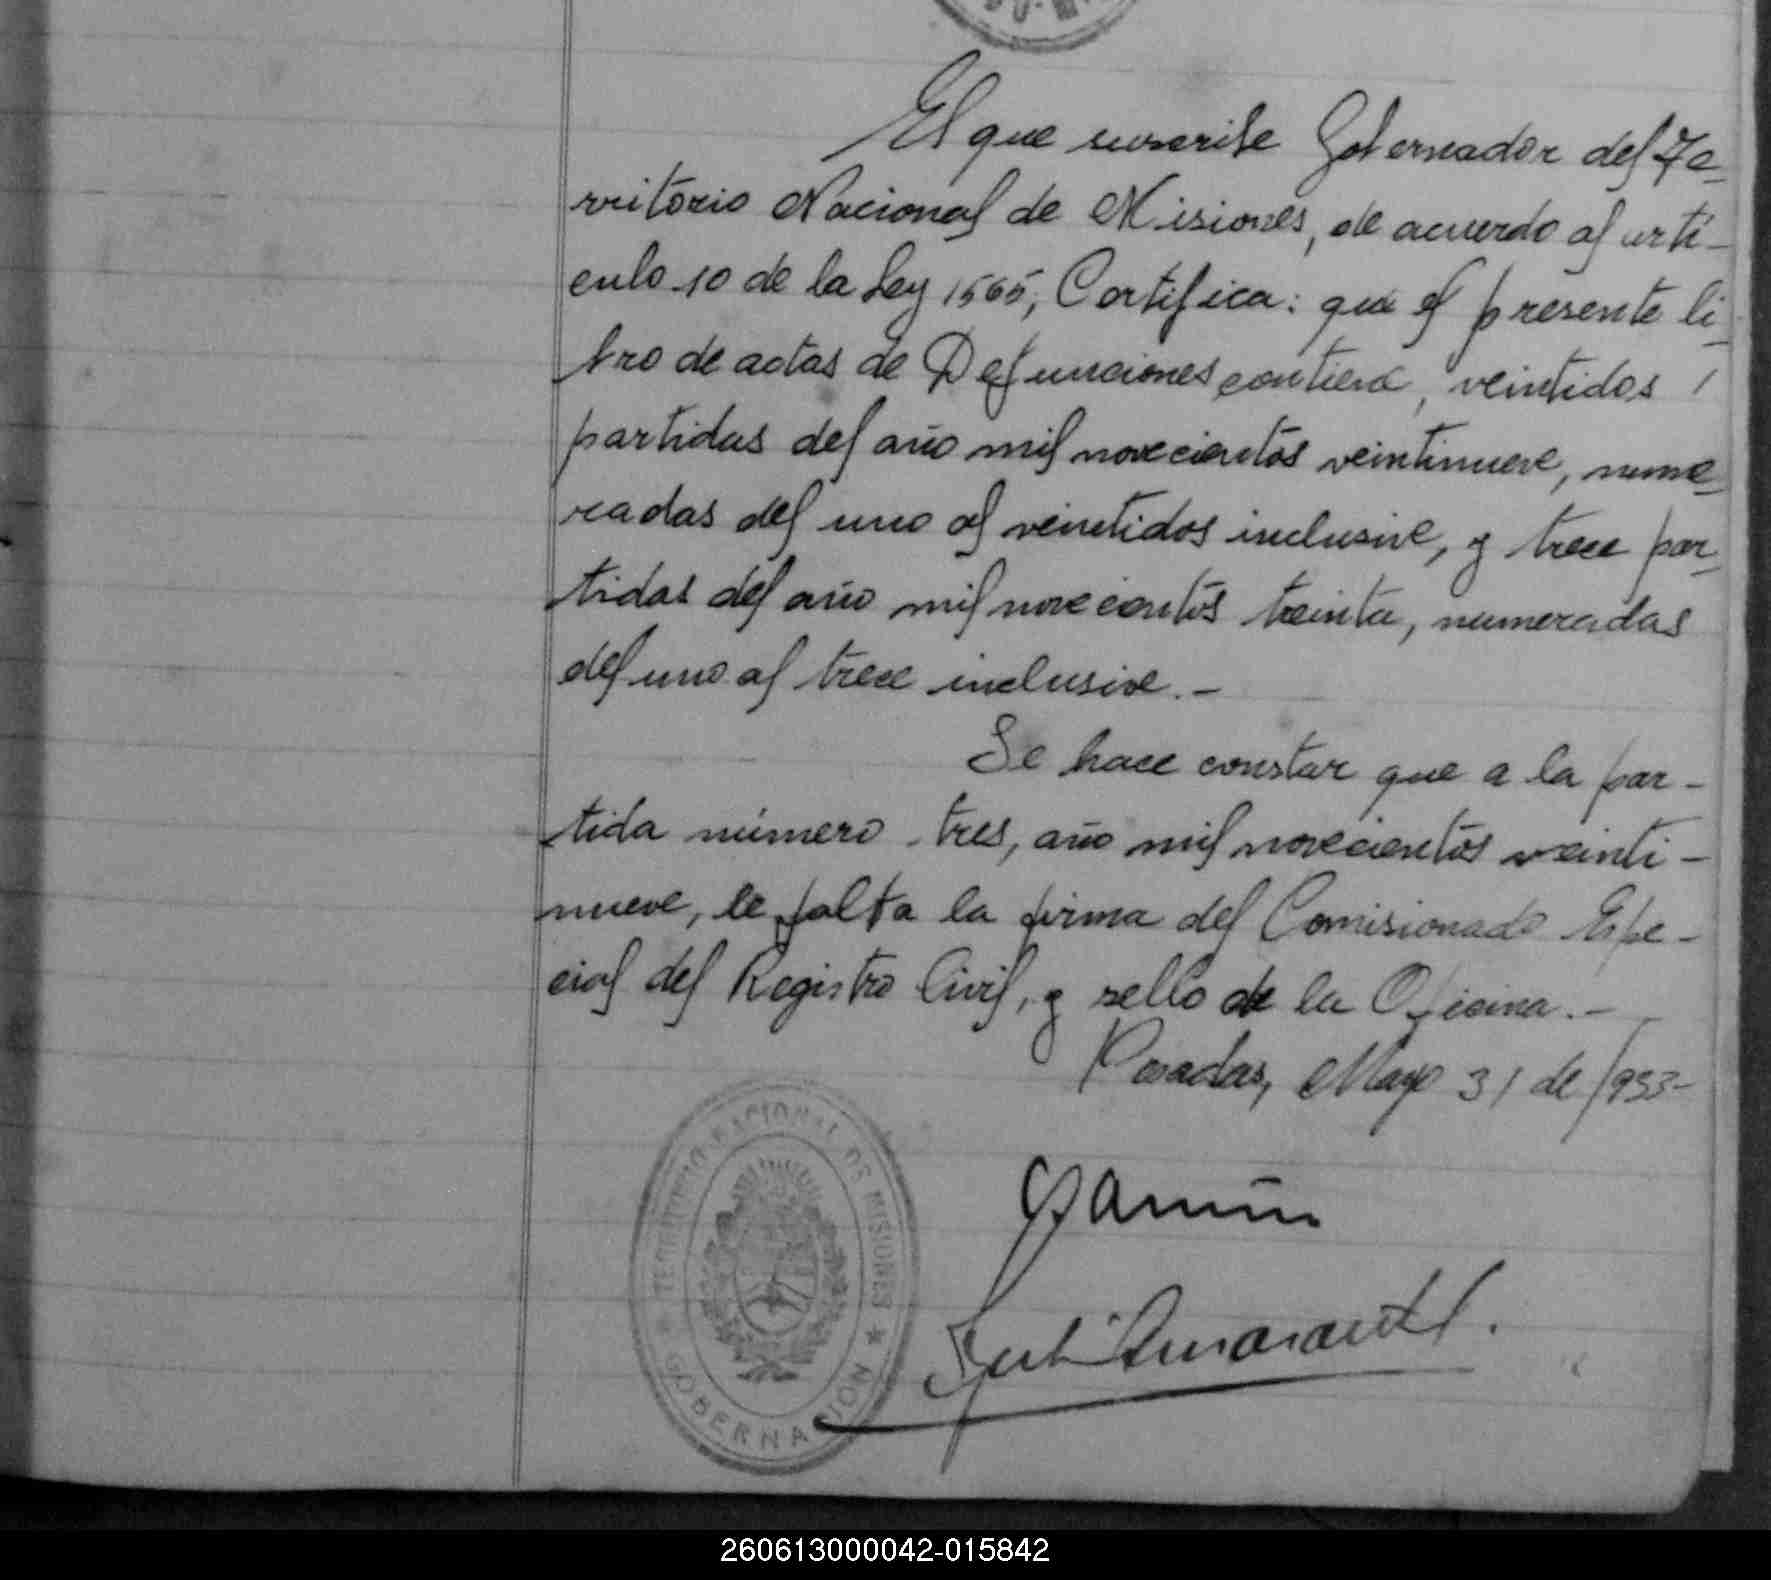 El que suscribe Gobernador del Te-
rritorio Nacional de Misiones, de acuerdo al artí-
culo 10 de la Ley 1565, Certifica: que el presente li-
bro de actas de Defunciones contiene, veintidos
partidas del año mil novecientos veintinueve, nume-
radas del uno al veintidos inclusive, y trece par-
tidas del año mil novecientos treinta, numeradas
del uno al trece inclusive.-
Se hace constar que a la par-
tida número tres, año mil novecientos veinti-
nueve, le falta la firma del Comisionado Espe-
cial del Registro Civil, y sello de la Oficina.-
Posadas, Mayo 31 de 1933-
TERRITORIO NACIONAL DE MISIONES
GOBERNACION
260613000042-015842